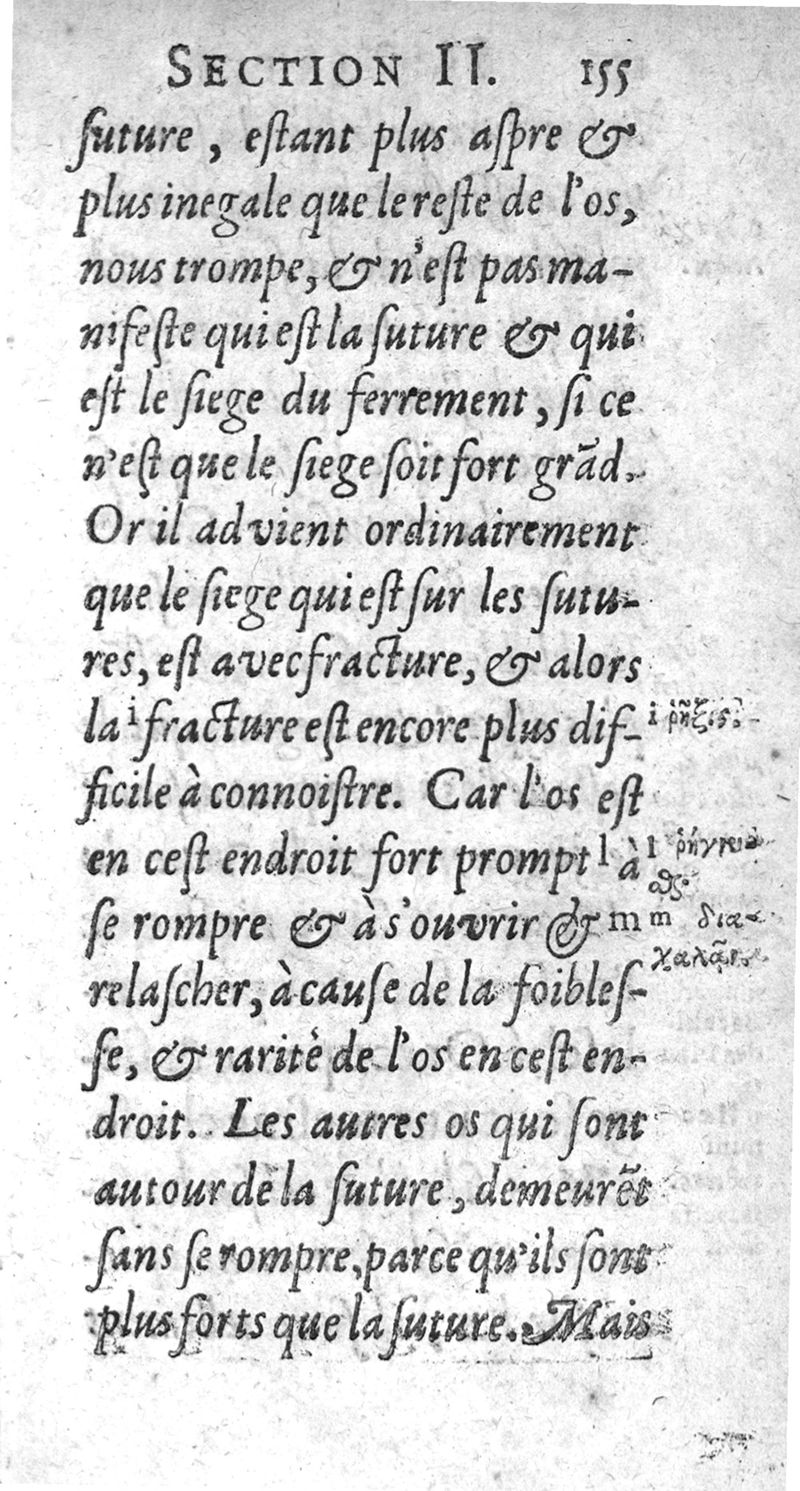 SECTION II. 155
ſuture, eſtant plus aſpre &
plus inegale que le reſte de l'os,
nous trompe, & n'eſt pas ma-
nifeſte qui eſt la ſuture & qui
eſt le ſiege du ferrement, ſi ce
n'eſt que le ſiege ſoit fort grãd.
Or il advient ordinairement
que le ſiege qui eſt ſur les ſutu-
res, eſt avec fracture, & alors
la i fracture eſt encore plus dif-
i ῥῆξις.
ficile à connoiſtre. Car l'os eſt
en ceſt endroit fort prompt l à
l
ſe rompre & à s'ouvrir & m
m δια-
χαλᾶν.
relaſcher, à cauſe de la foibleſ-
ſe, & raritè de l'os en ceſt en-
droit. Les autres os qui ſont
autour de la ſuture, demeurẽt
ſans ſe rompre, parce qu'ils ſont
plus forts que la ſuture. Mais